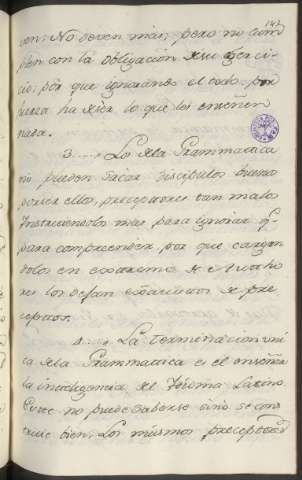 143
con. No deven mas, pero no cum
plen con la obligacion de su exerci
cio, por que ignorando el todo, por
fuerza ha de ser lo que los enseñen
nada.
3.... Los de la Grammatica
no pueden sacar discipulos buenos
porque ellos, preceptores tan malos
instruiendolos mas para ignorar q.
para comprender, por que cargan
dolos en extremo de Auctho
res los dejan exhaustos de pre
ceptos.
4.... La terminacion uni
ca de la Grammatica es el enseñar
la inteligencia del Idioma Latino
Este no puede saberse sino se cons
truie bien. Los mismos preceptores